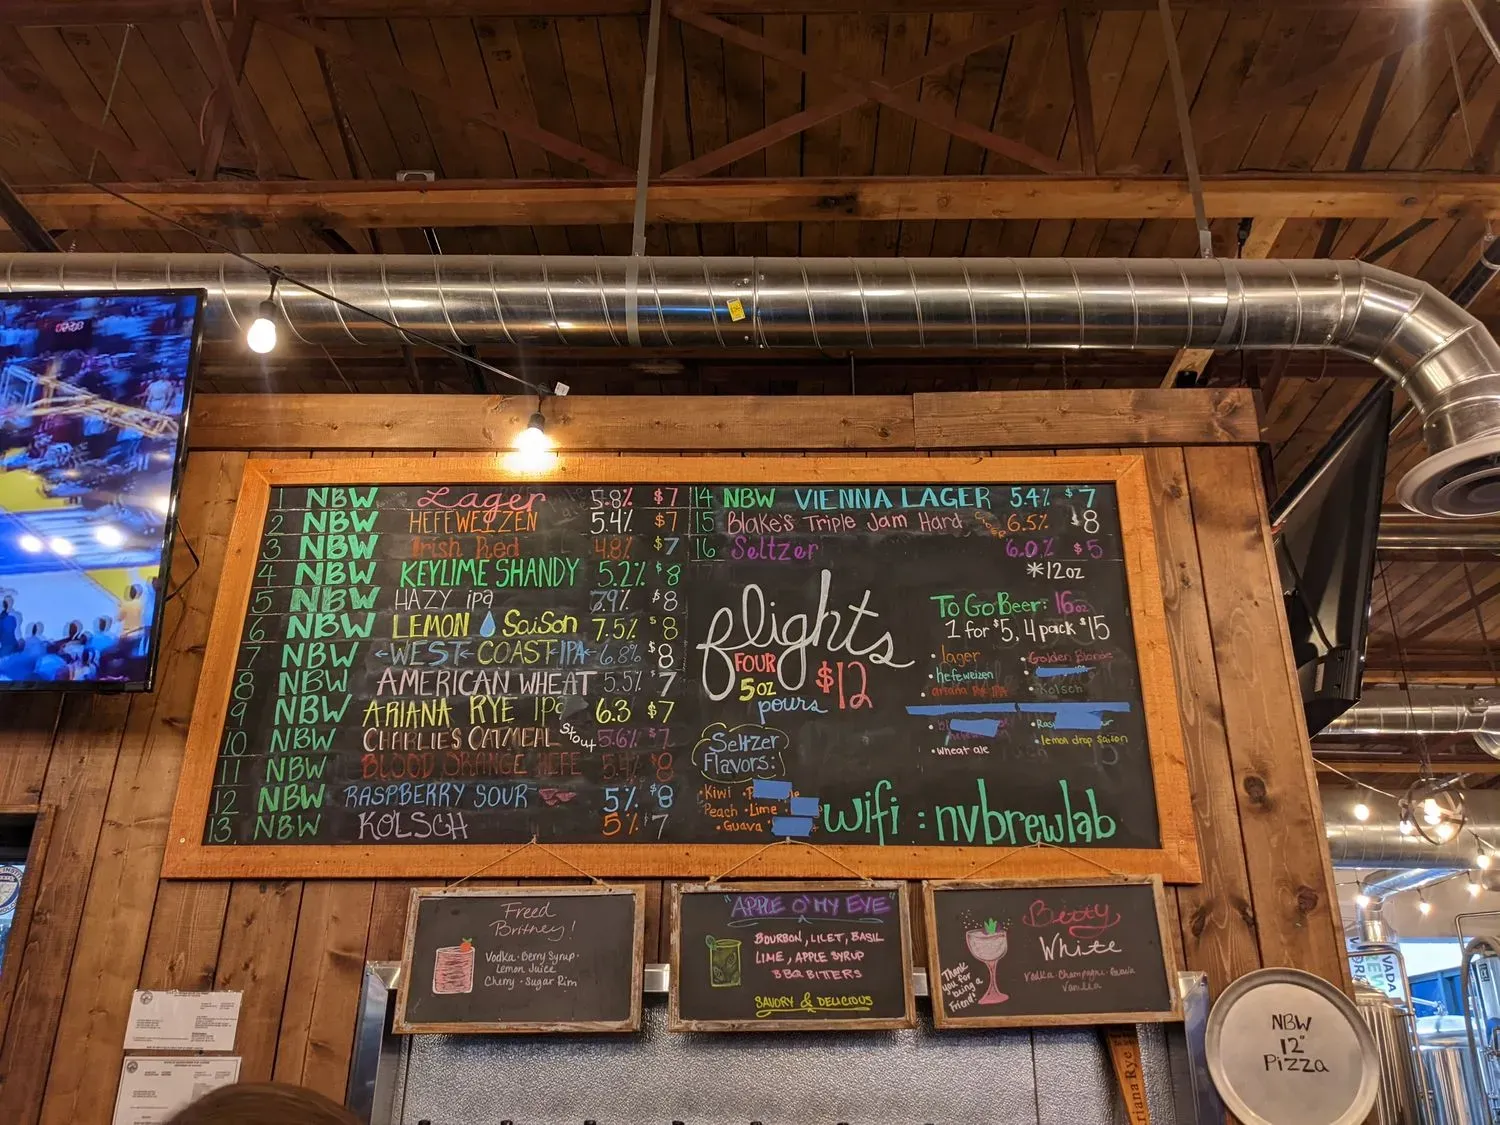 1 NBW Lager 5.8% $7
2 NBW HEFEWEIZEN 5.4% $7
3 NBW Irish Red 4.8% $7
4 NBW KEYLIME SHANDY 5.2% $8
5 NBW HAZY ipa 7.9% $8
6 NBW LEMON SaiSon 7.5% $8
7 NBW WEST COAST IPA 6.8% $8
8 NBW AMERICAN WHEAT 5.5% $7
9 NBW ARIANA RYE IPa 6.3 $7
10 NBW CHARLIES OATMEAL Stout 5.6% $7
11 NBW BLOOD ORANGE HEFE 5.4% $8
12 NBW RASPBERRY SOUR 5% $8
13 NBW KOLSCH 5% $7
14 NBW VIENNA LAGER 5.4% $7
15 Blake's Triple Jam Hard 6.5% $8
16 Seltzer 6.0% $5
*12oz
flights
FOUR
5oz
pours
$12
To Go Beer: 16oz
1 for $5, 4 pack $15
• lager
• hefeweizen
• ariana Rye IPA
• wheat ale
• Golden Blonde
• Kolsch
• lemon drop saison
Seltzer
Flavors:
• Kiwi
Peach • Lime
• Guava
wifi : nvbrewlab
Freed
Britney!
Vodka • Berry Syrup •
Lemon Juice
Cherry • Sugar Rim
"APPLE O' MY EYE"
BOURBON, LILET, BASIL
LIME, APPLE SYRUP
BBQ BITERS
SAVORY & DELICIOUS
Betty
White
Vodka • Champagne • Guavia
Vanilla
Thank
you for
being a
Friend!
NBW
12"
Pizza
riana Rye
VADA